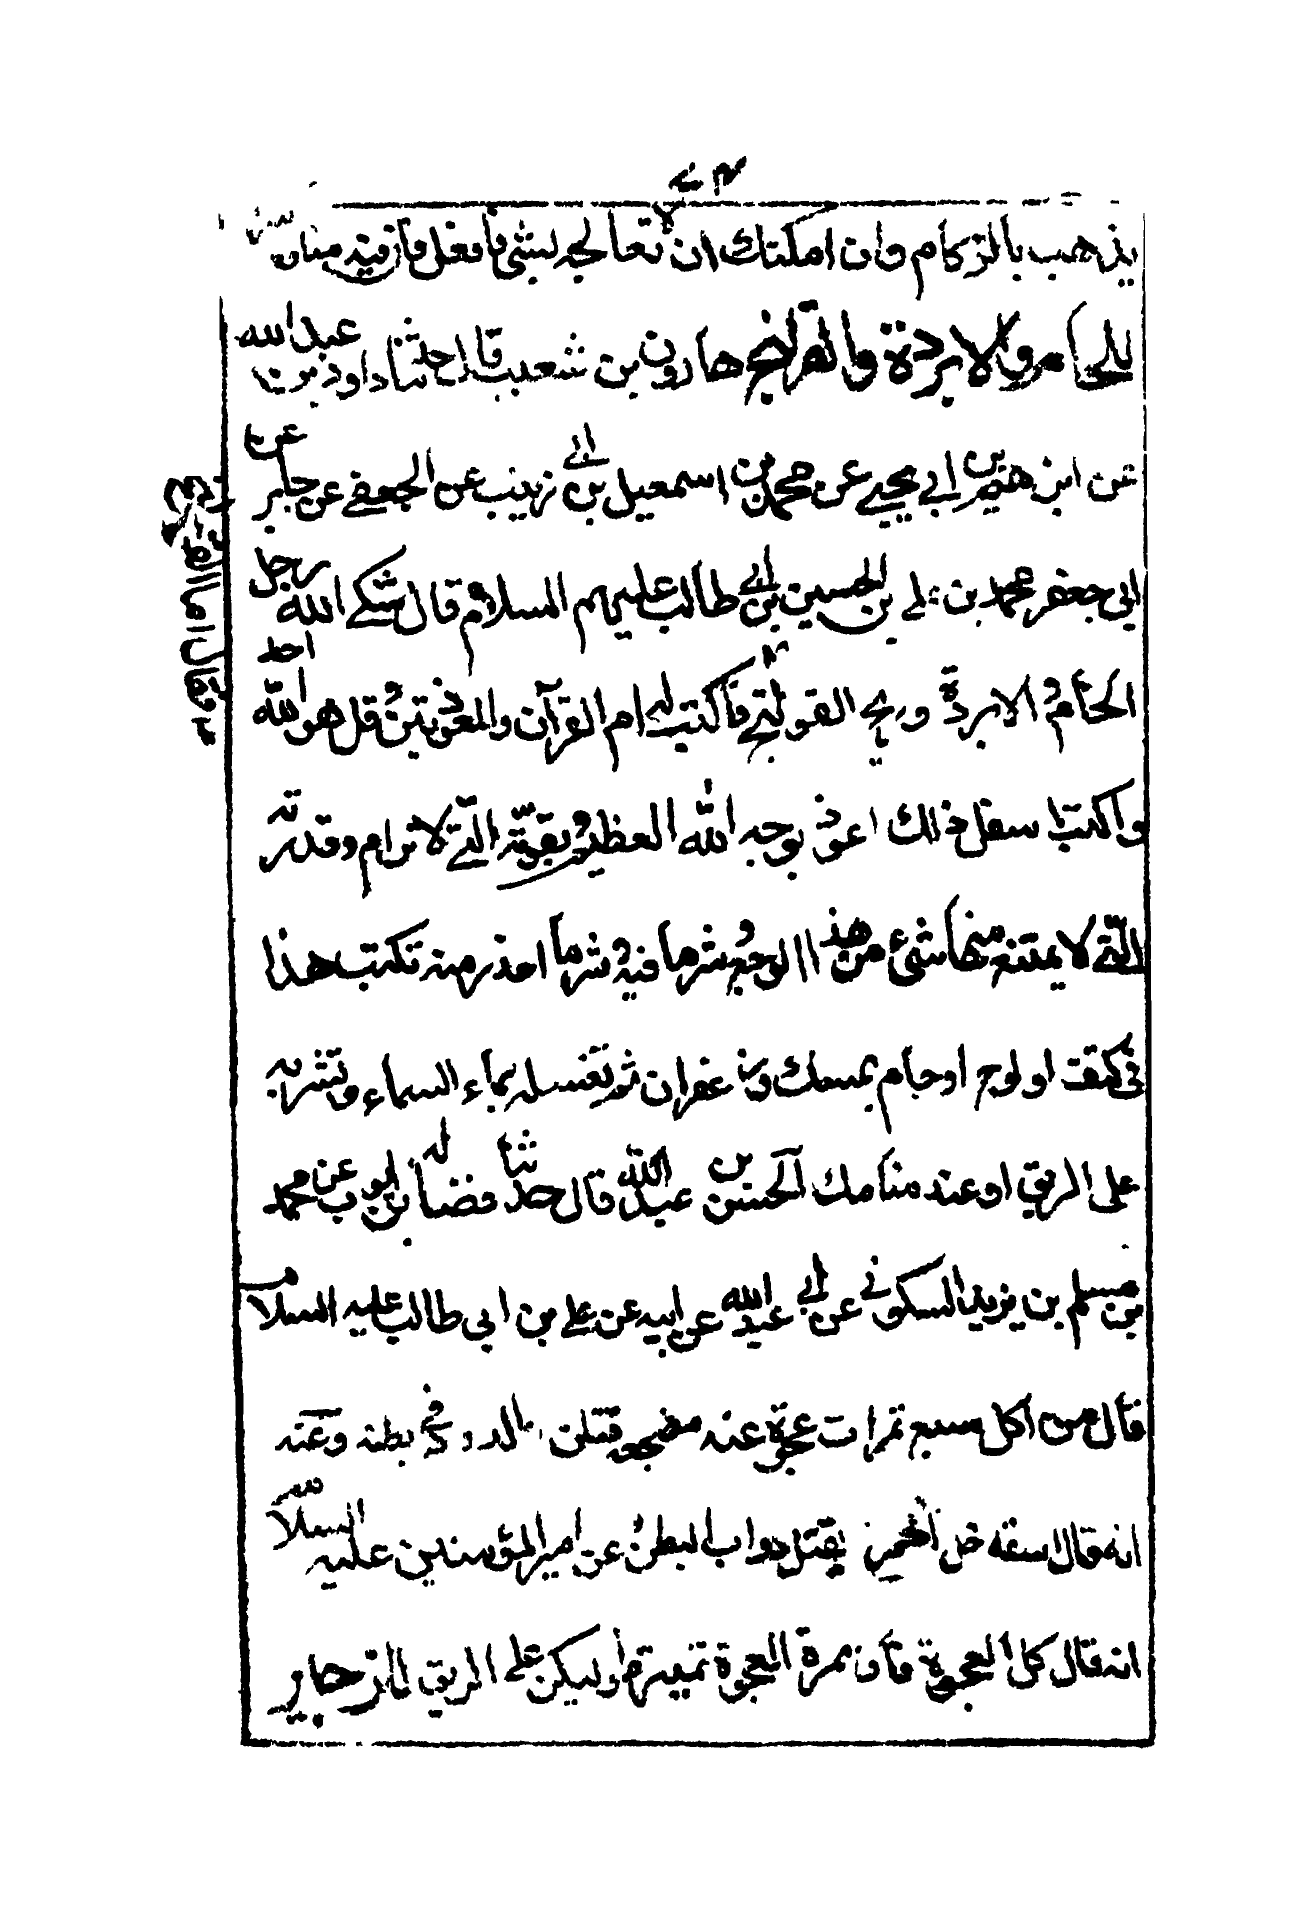 يذهب بالزكام وان امكنك ان لا تعالجه بشئ فافعل فان فيه منافع
للخام والابردة والقولنج هارون بن شعيب قال حدثنا داود بن عبد الله
عن ابن هيصر بن ابي يحيى عن محمد بن اسمعيل بن ابي زينب عن الجعفي عن جابر عن
ابي جعفر محمد بن علي بن الحسين بن ابي طالب عليهم السلام قال شكى الله رجل
الخام والابردة وريح القولنج فاكتب له ام القرآن والمعوذتين وقل هو الله احد
واكتب اسفل ذلك اعوذ بوجه الله العظيم وبقوته التي لا ترام وقدرته
التي لا يمتنع منها شئ من هذا الوجع وشر ما فيه وشر ما احذر منه تكتب هذا
في كتف او لوح او جام بمسك وزعفران ثم تغسله بماء السماء وتشربه
على الريق او عند منامك الحسن بن عبد الله قال حدثنا فضاله بن ايوب عن محمد
بن مسلم بن يزيد السكوني عن ابي عبد الله عن ابيه عن علي بن ابي طالب عليه السلام
قال من اكل سبع تمرات عجوة عند مضجعه قتلن الدود في بطنه وعنه
انه قال اسقه خل الخمر يقتل دواب البطن عن امير المؤمنين عليه السلام
انه قال كل العجوة فان تمرة العجوة تميتها وليكن على الريق المازحباير